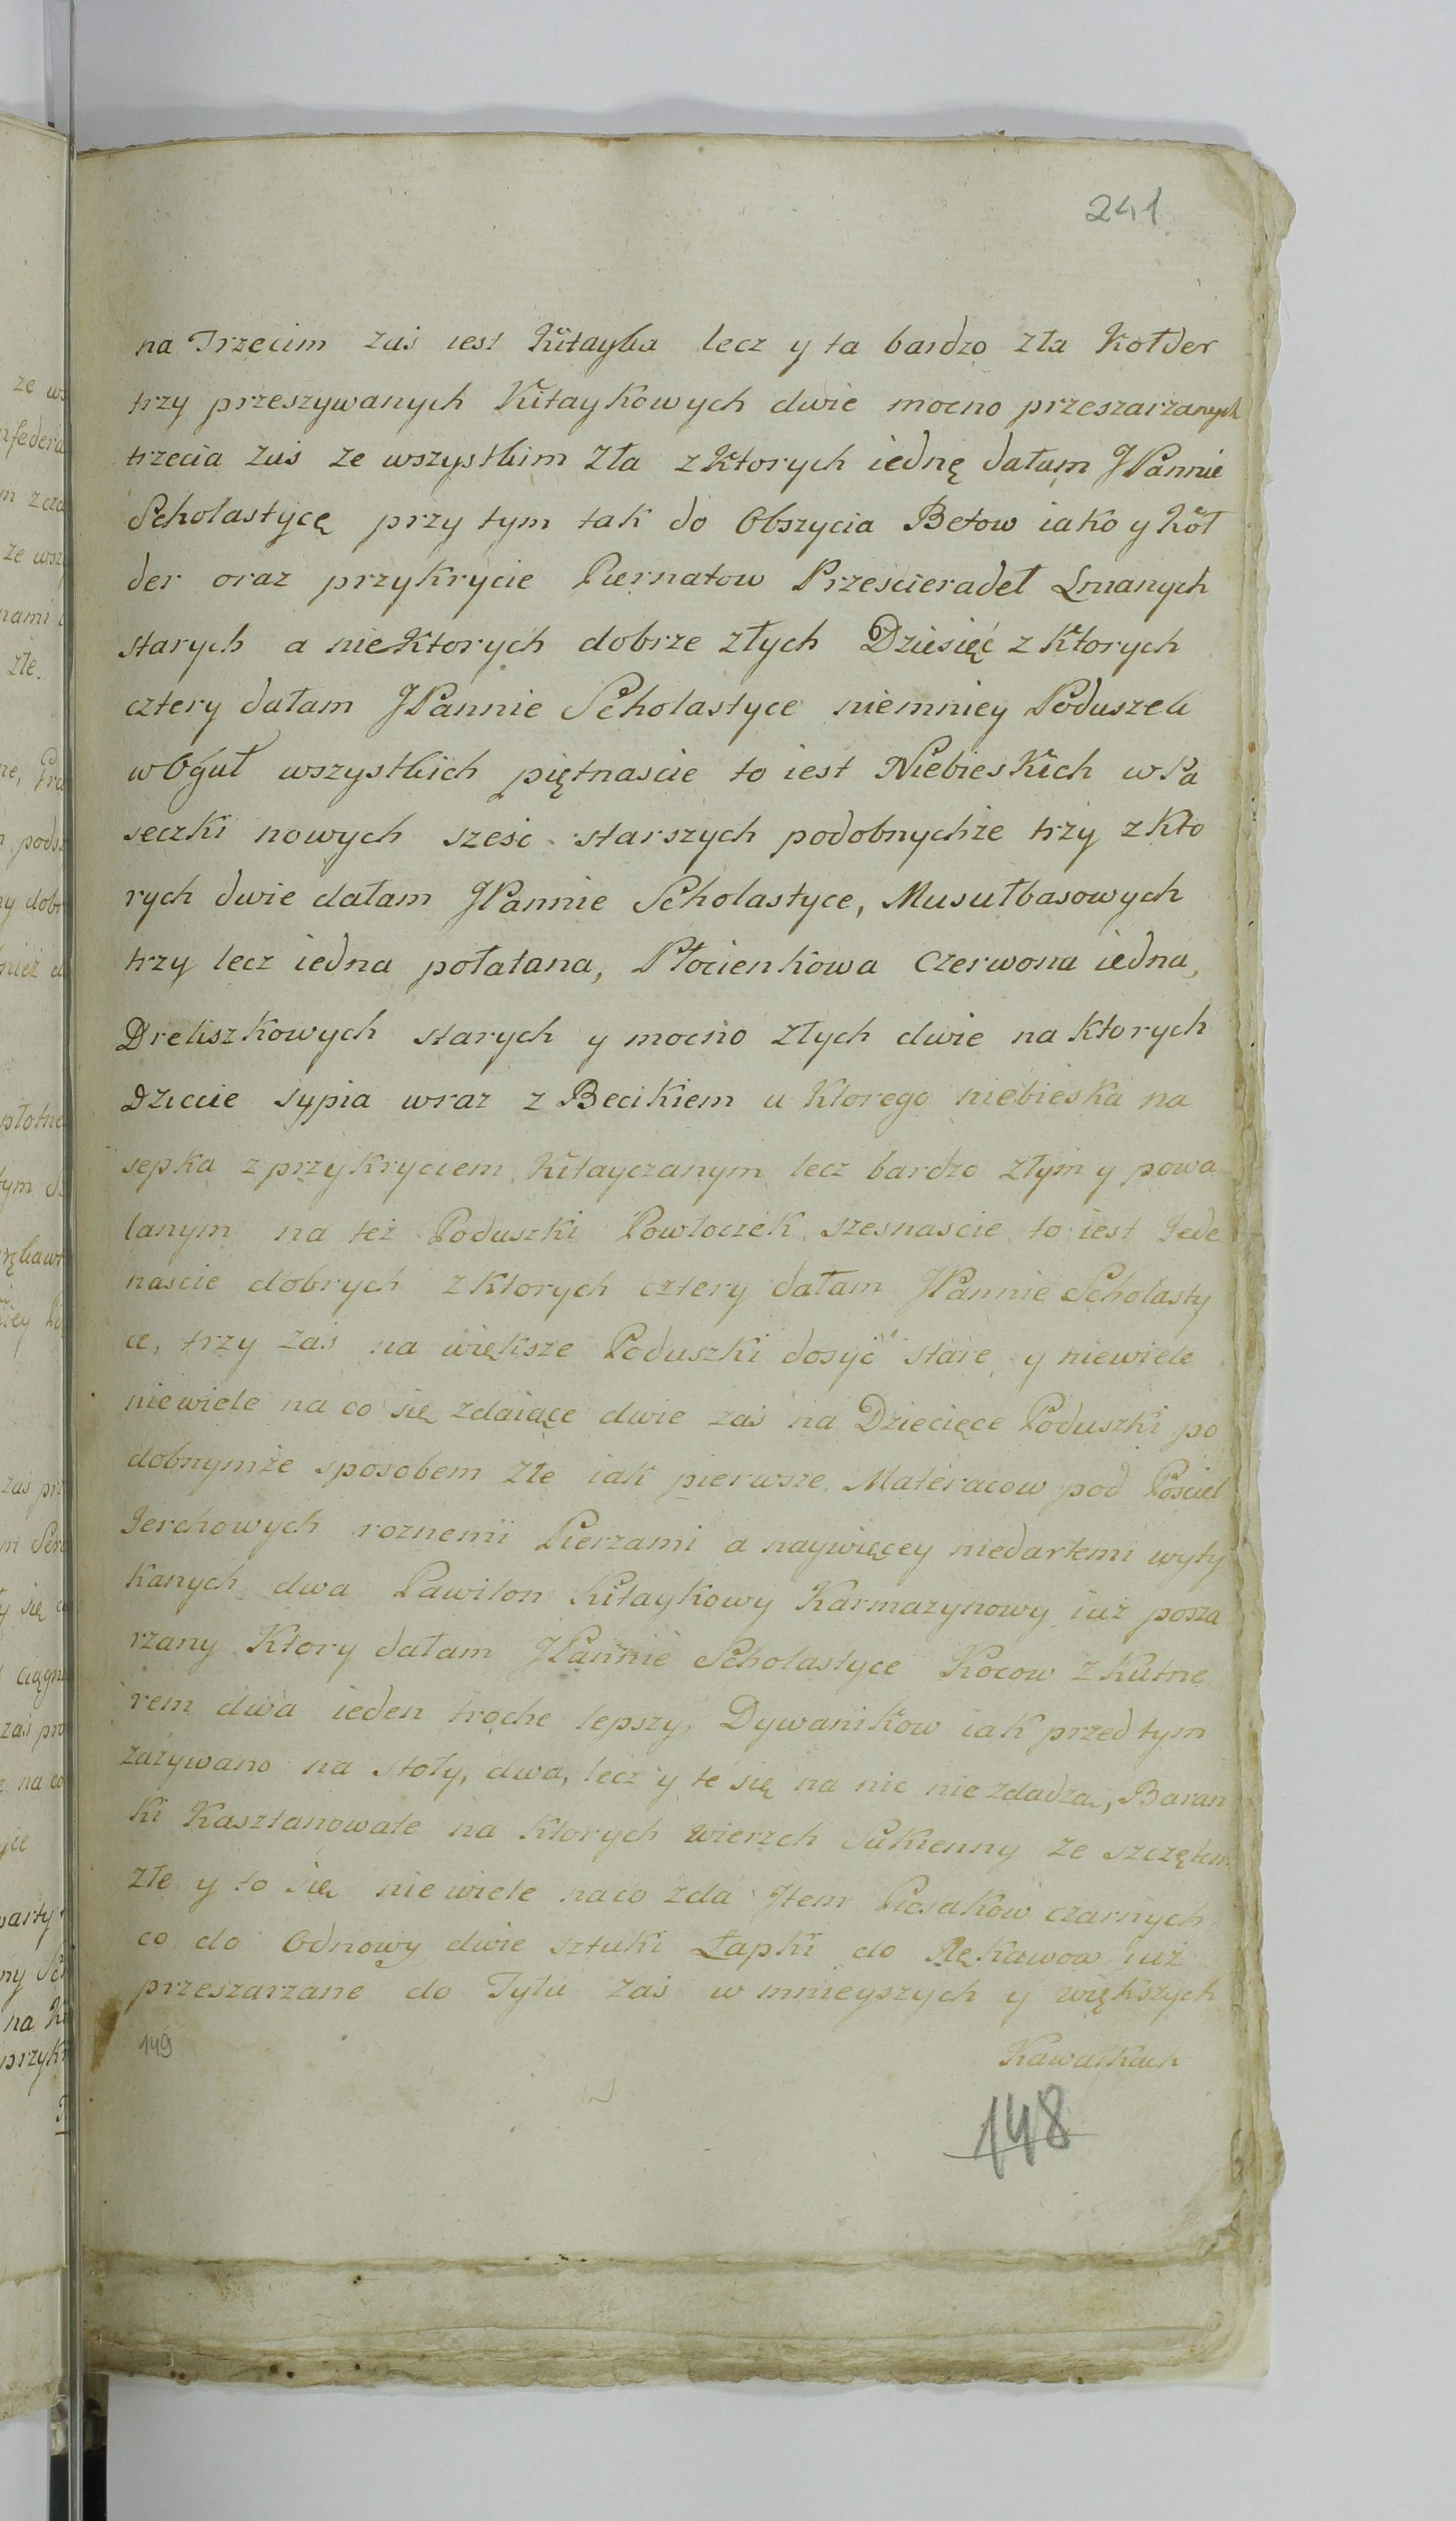 241
na Trzecim zaś iest Kitayka lecz y ta bardzo zła Kołder
trzy przeszywanych Kitaykowych dwie mocno przeszarzanych
trzecia zaś ze wszystkim zła z Ktorych iednę dałam JPannie
Scholastycę przy tym tak do Obszycia Betow iako y Koł
der oraz przykrycie Piernatow Przescieradeł Lnianych
starych a nieKtorych dobrze złych Dziesięć z Ktorych
cztery dałam JPannie Scholastyce niemniey Poduszek
w Oguł wszystkich piętnascie to iest Niebieskich w Pa
seczki nowych sześć starszych podobnychże trzy z Kto
rych dwie dałam JPannie Scholastyce, Musułbasowych
trzy lecz iedna połatana, Płocienkowa Czerwona iedna,
Dreliszkowych starych y mocno złych dwie na Ktorych
Dziecie sypia wraz z Becikiem u Ktorego niebieska na
sepka z przykryciem Kitayczanym lecz bardzo złym y powa
lanym na też Poduszki Powłoczek szesnascie to iest Jede
nascie dobrych z Ktorych cztery dałam JPannie Scholasty
ce, trzy zaś na większe Poduszki dosyć stare y niewiele
niewiele na co się zdaiące dwie zaś na Dziecięce Poduszki po
dobnymże sposobem złe iak pierwsze. Materacow pod Pościel
Jerchowych roznemi Pierzami a naywięcey niedartemi wyty
Kanych dwa Pawilon Kitaykowy Karmazynowy iuż posza
rzany Ktory dałam JPannie Scholastyce Kocow z Kutne
rem dwa ieden trochę lepszy, Dywanikow iak przed tym
zażywano na stoły, dwa, lecz y te się na nic nie zdadzą, Baran
ki Kasztanowate na Ktorych wierzch Sukienny ze szczętem
złe y to się nie wiele naco zda Jtem Piesakow czarnych
co do Odnowy dwie sztuki Łapki do Rękawow iuż
przeszarzane do Tyłu zaś w mnieyszych y większych
Kawałkach
149
148